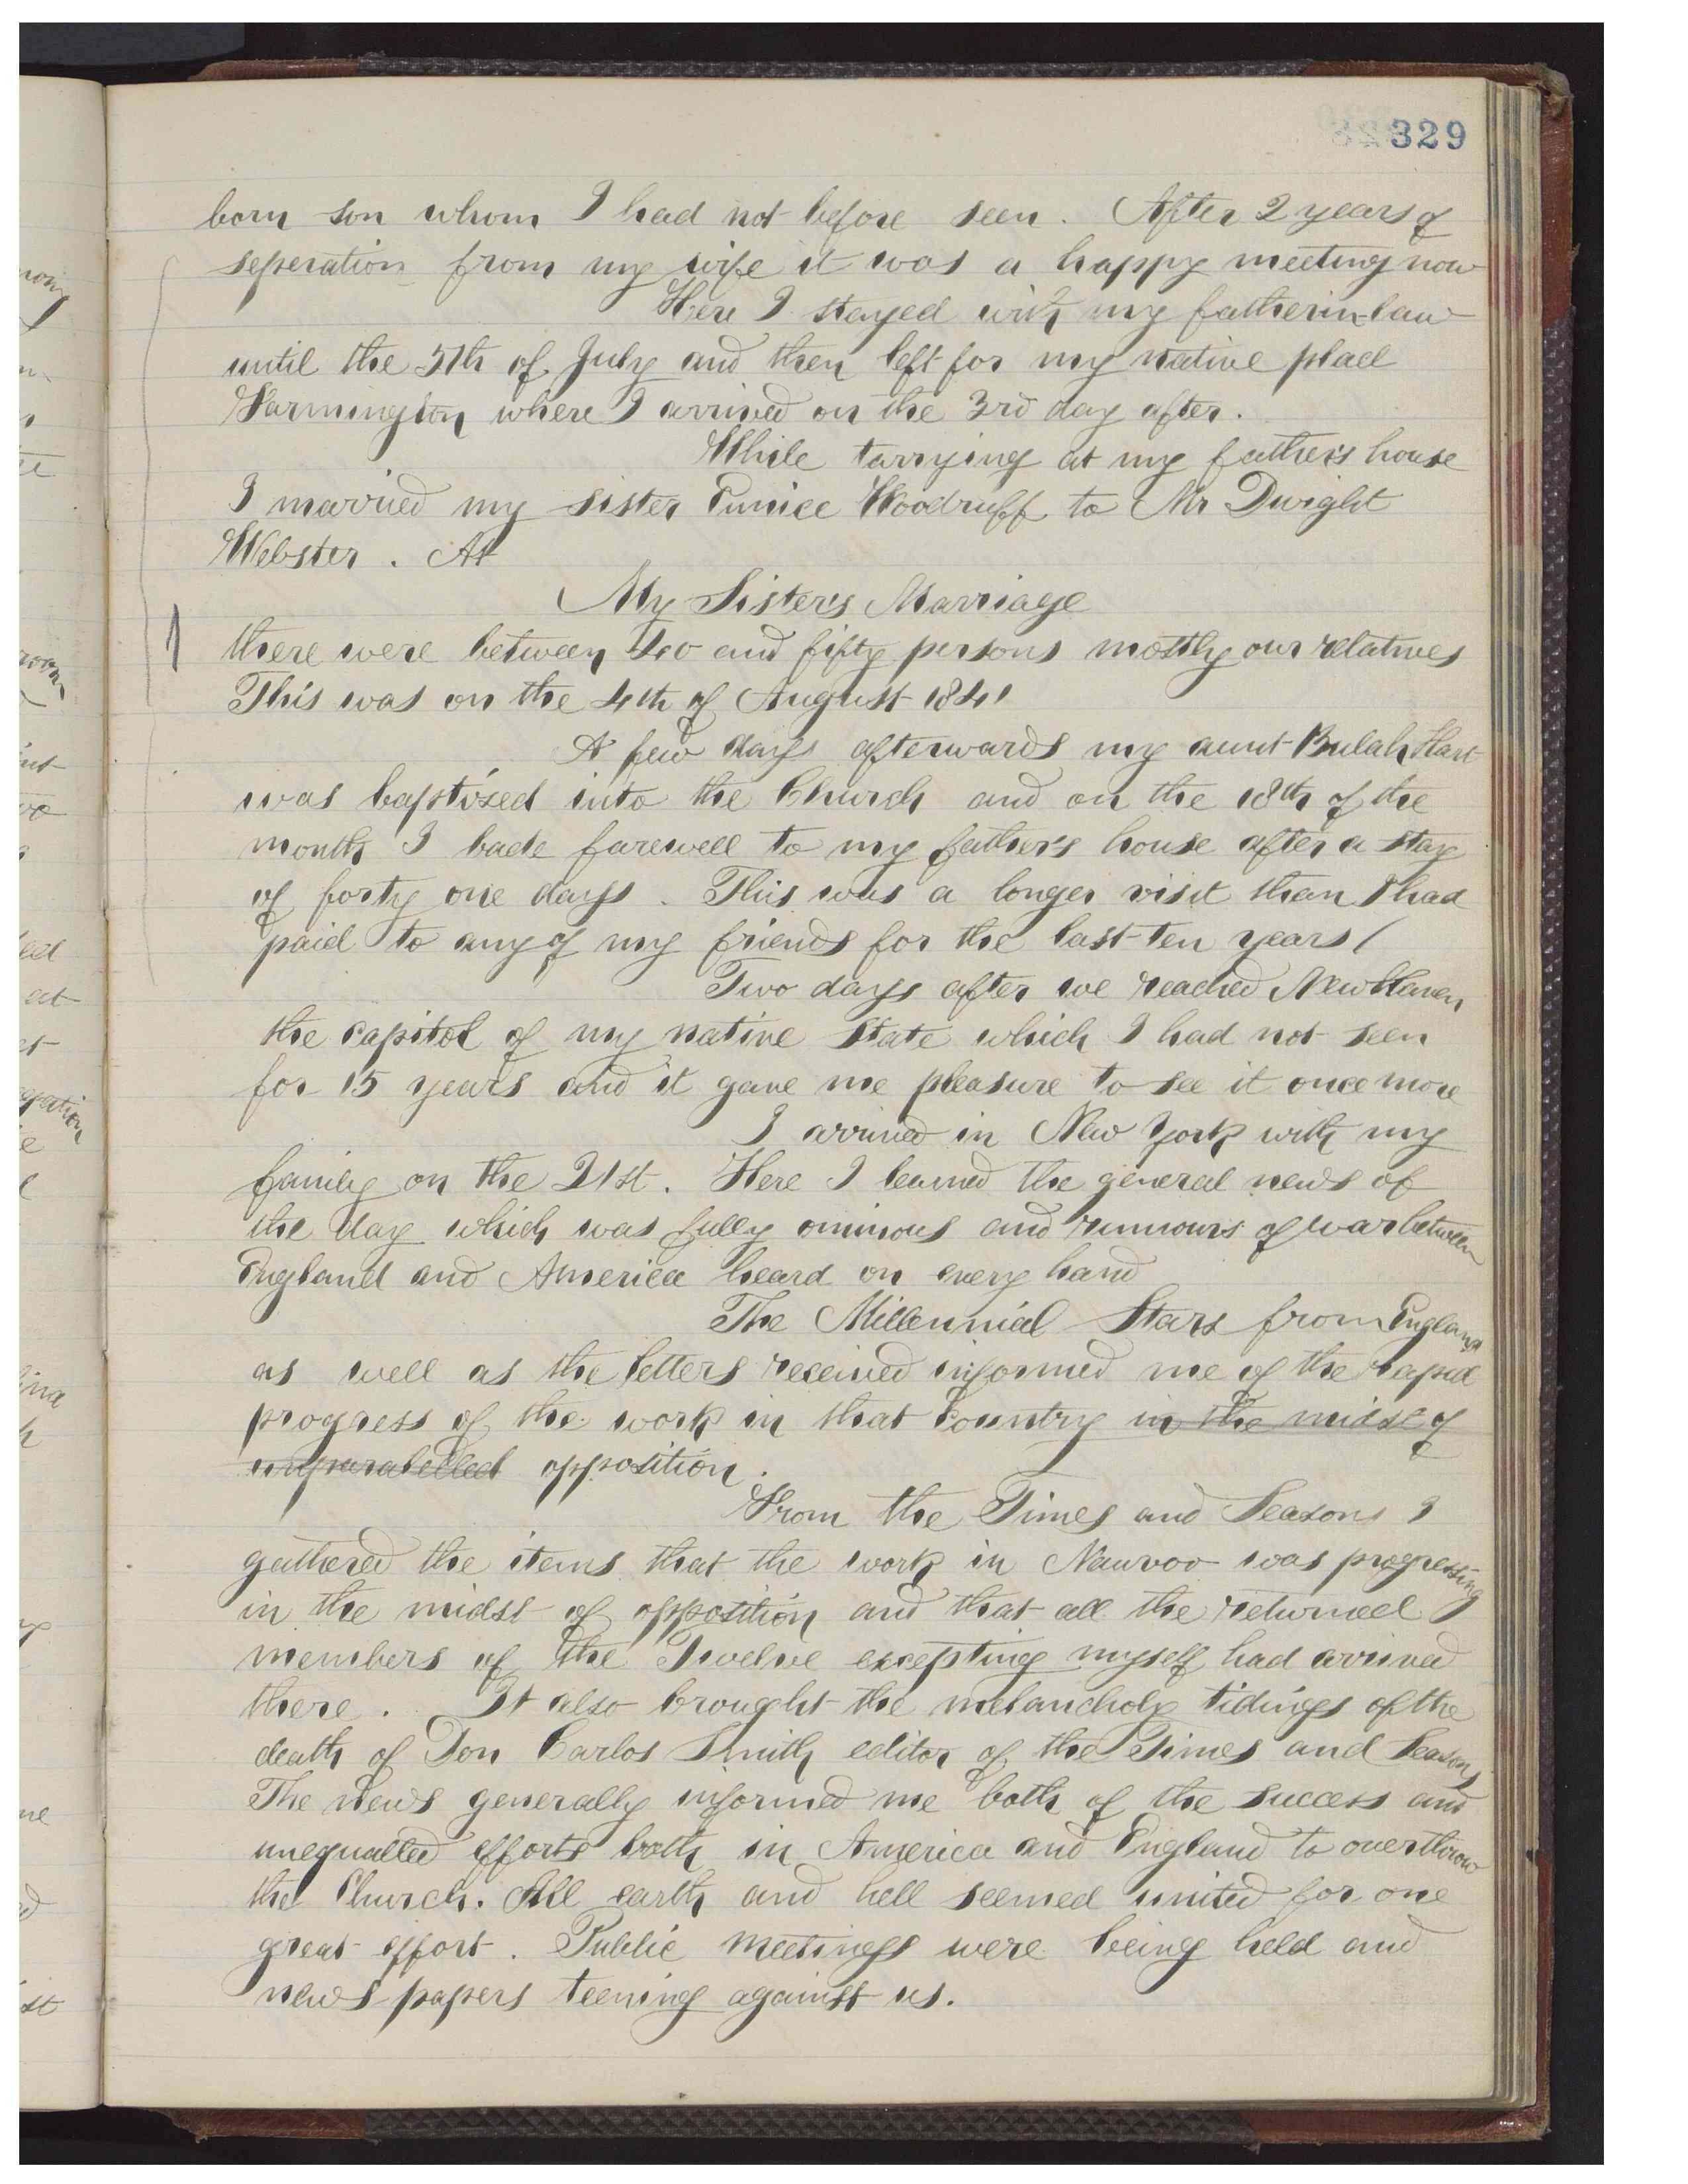 329
born son whom I had not before seen. After 2 years of
seperation from my wife it was a happy meeting now
Here I stayed with my father-in-law
until the 5th of July and then left for my native place
Farmington where I arrived on the 3rd day after.
While tarrying at my father's house
I married my sister Eunice Woodruff to Mr Dwight
Webster. At
My Sister's Marriage
there were between 40 and fifty persons mostly our relatives
This was on the 4th of August 1841
A few days afterwards my aunt Bulah Hart
was baptized into the Church and on the 18th of the
month I bade farewell to my father's house after a stay
of forty one days. This was a longer visit than I had
paid to any of my friends for the last ten years/
Two days after we reached New Haven
the capitol of my native State which I had not seen
for 15 years and it gave me pleasure to see it once more
I arrived in New York with my
family on the 21st. Here I learned the general news of
the day which was fully ominous and rumours of war between
England and America heard on every hand
The Millennial Stars from England
as well as the letters received informed me of the rapid
progress of the work in that Country in the midst of
unparalelled opposition.
From the Times and Seasons I
gathered the items that the work in Nauvoo was progressing
in the midst of opposition and that all the returned
members of the Twelve excepting myself had arrived
there. It also brought the melancholy tidings of the
death of Don Carlos Smith editor of the Times and Seasons
The news generally informed me both of the success and
unequalled efforts both in America and England to overthrow
the Church. All earth and hell seemed united for one
great effort. Public meetings were being held and
news papers teeming against us.